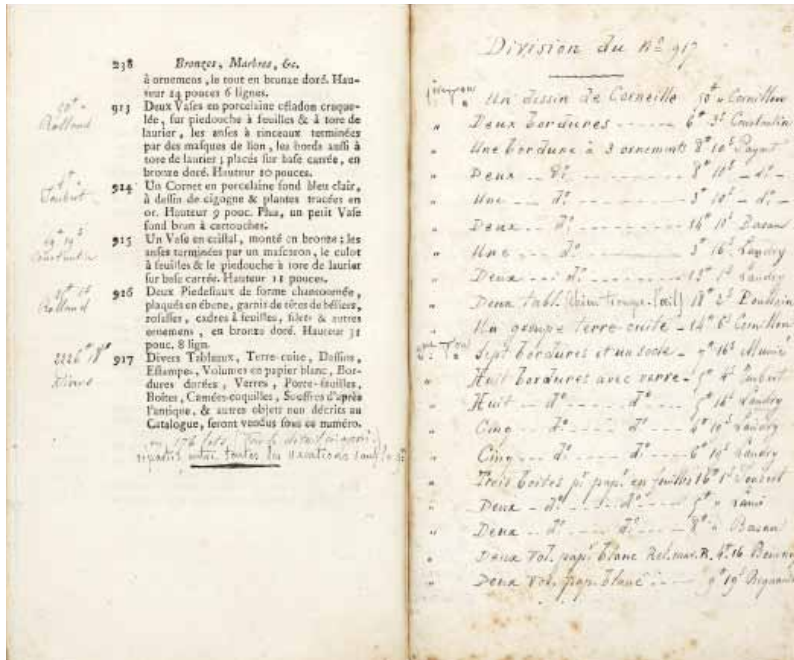 238 Bronzes, Marbres, &c.
à ornemens, le tout en bronze doré. Hau-
teur 14 pouces 6 lignes.
50 "
Rolland
913 Deux Vases en porcelaine céladon craque-
lée, sur piedouche à feuilles & à tore de
laurier, les anses à rinceaux terminées
par des masques de lion, les bords aussi à
tore de laurier; placés sur base carrée, en
bronze doré. Hauteur 10 pouces.
Joubert
914 Un Cornet en porcelaine fond bleu clair,
à dessin de cigogne & plantes tracées en
or. Hauteur 9 pouc. Plus, un petit Vase
fond brun à cartouches.
69 19 s
Constantin
915 Un Vase en cristal, monté en bronze; les
anses terminées par un mascaron, le culot
à feuilles & le piedouche à tore de laurier
sur base carrée. Hauteur 11 pouces.
Rolland
916 Deux Piedestaux de forme chantournée,
plaqués en ébene, garnis de têtes de béliers,
rosasses, cadres à feuilles, filets & autres
ornemens, en bronze doré. Hauteur 31
pouc. 8 lign.
2226 18
917 Divers Tableaux, Terre-cuite, Dessins,
Estampes, Volumes en papier blanc, Bor-
dures dorées, Verres, Porte-feuilles,
Boîtes, Camées-coquilles, Souffres d'après
l'antique, & autres objets non décrits au
Catalogue, seront vendus sous ce numéro.
en 176 lots
répartis entre toutes les vacations
Division du No 917
Un dessin de Corneille 50 " Cornillon
" Deux bordures 6 3 s Constantin
" Une bordure à 3 ornements 8 10 s Payat
" Deux do 8 10 s do
" Une do 3 10 s do
" Deux do 14 10 s Basan
" Une do 3 16 s Landry
" Deux do 13 1 s Landry
" Deux tabl. 18 2 s
" Un groupe terre cuite 14 6 s Cornillon
Sept bordures et un socle 9 16 s
" Huit bordures avec verre 5 4 s Joubert
" Huit do do 5 16 s Landry
" Cinq do do 4 19 s Landry
" Cinq do do 6 19 s Landry
" Trois boites pr papr en feuilles 16 1 s Joubert
" Deux do do 5 " Lami
" Deux do do 8 " Basan
" Deux vol. papr blanc Rel. mar. R. 4 16
" Deux vol. pap. blanc 9 19 s